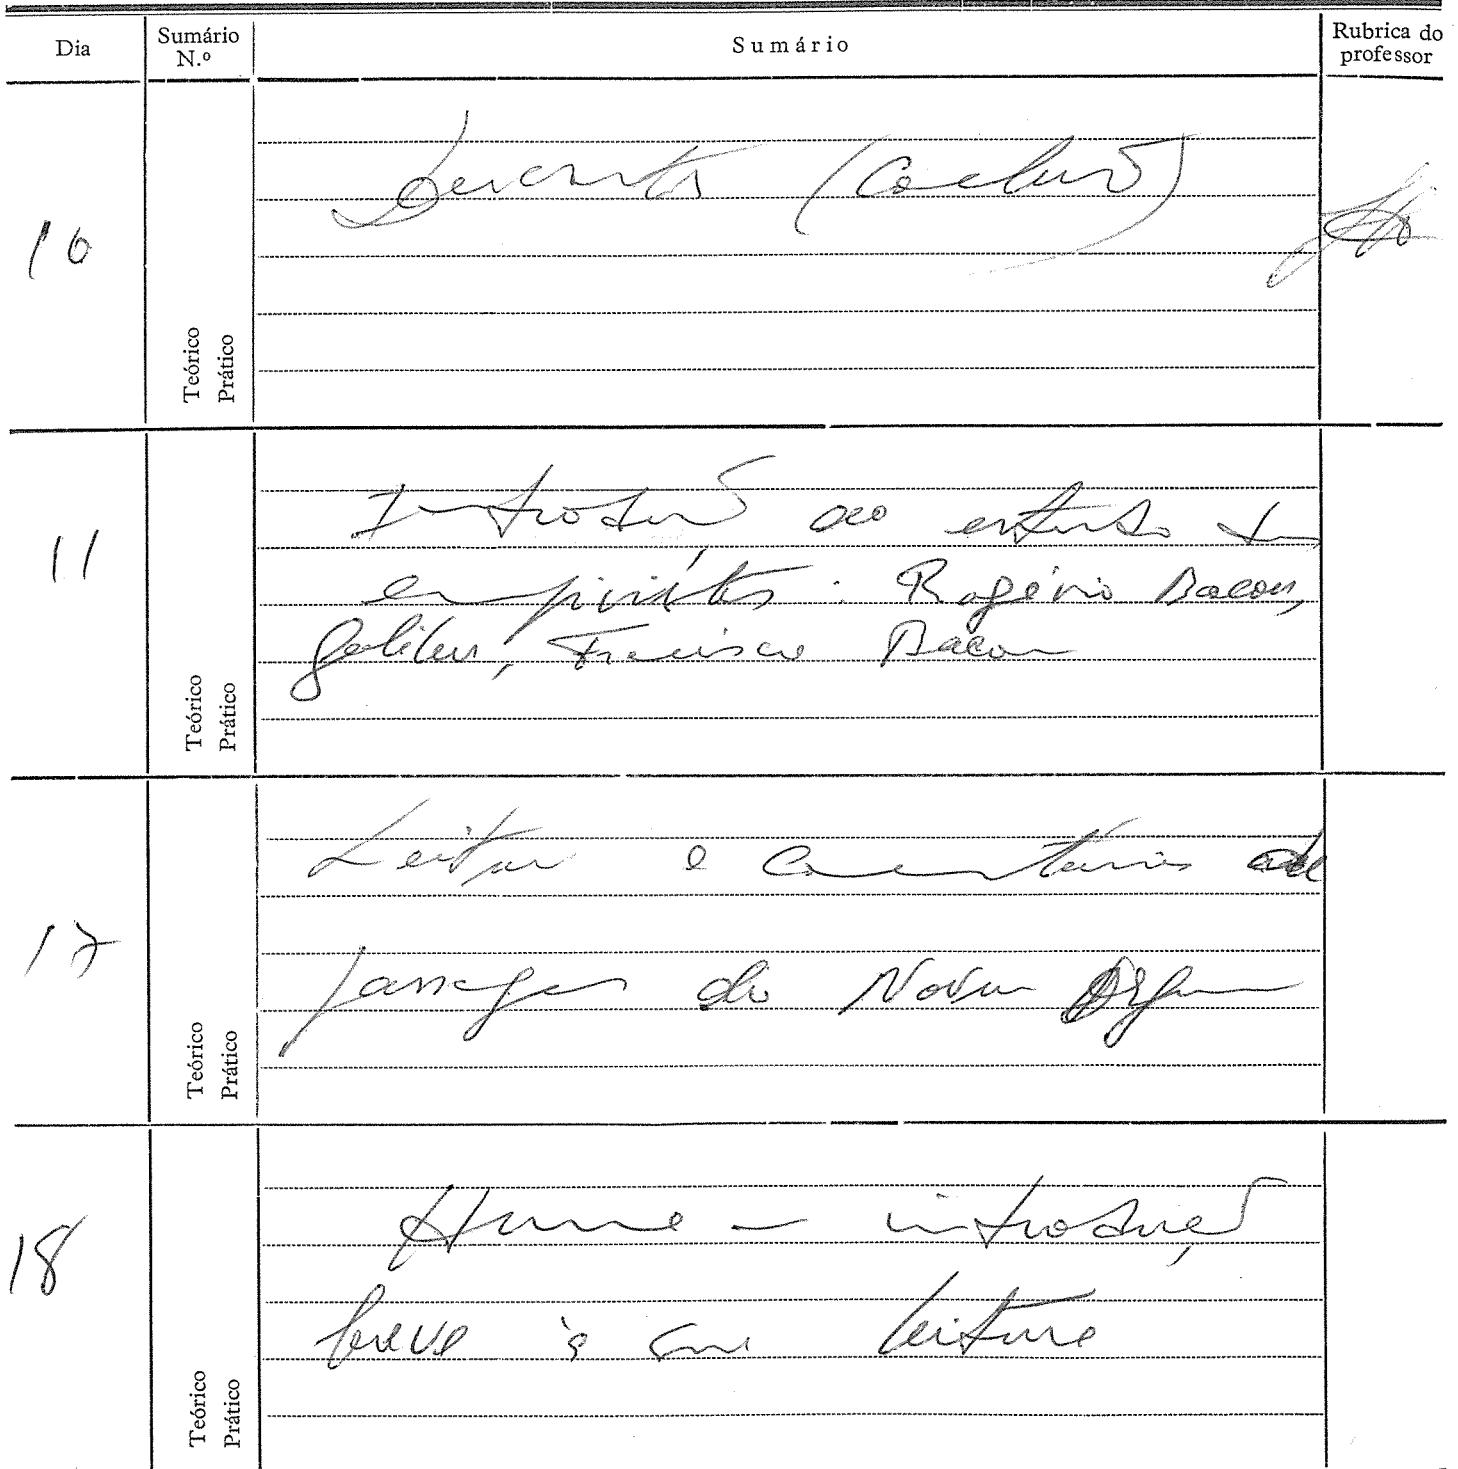 Dia
Sumário N.º
Sumário
Rubrica do professor
10
Descartes (Conclusão)
Teórico
Prático
11
Introdução ao estudo dos
empiristas: Rogério Bacon,
Galileu, Francisco Bacon
Teórico
Prático
17
Leitura e comentário de
passagens do Novum Organum
Teórico
Prático
18
Hume — introdução
breve à sua leitura
Teórico
Prático